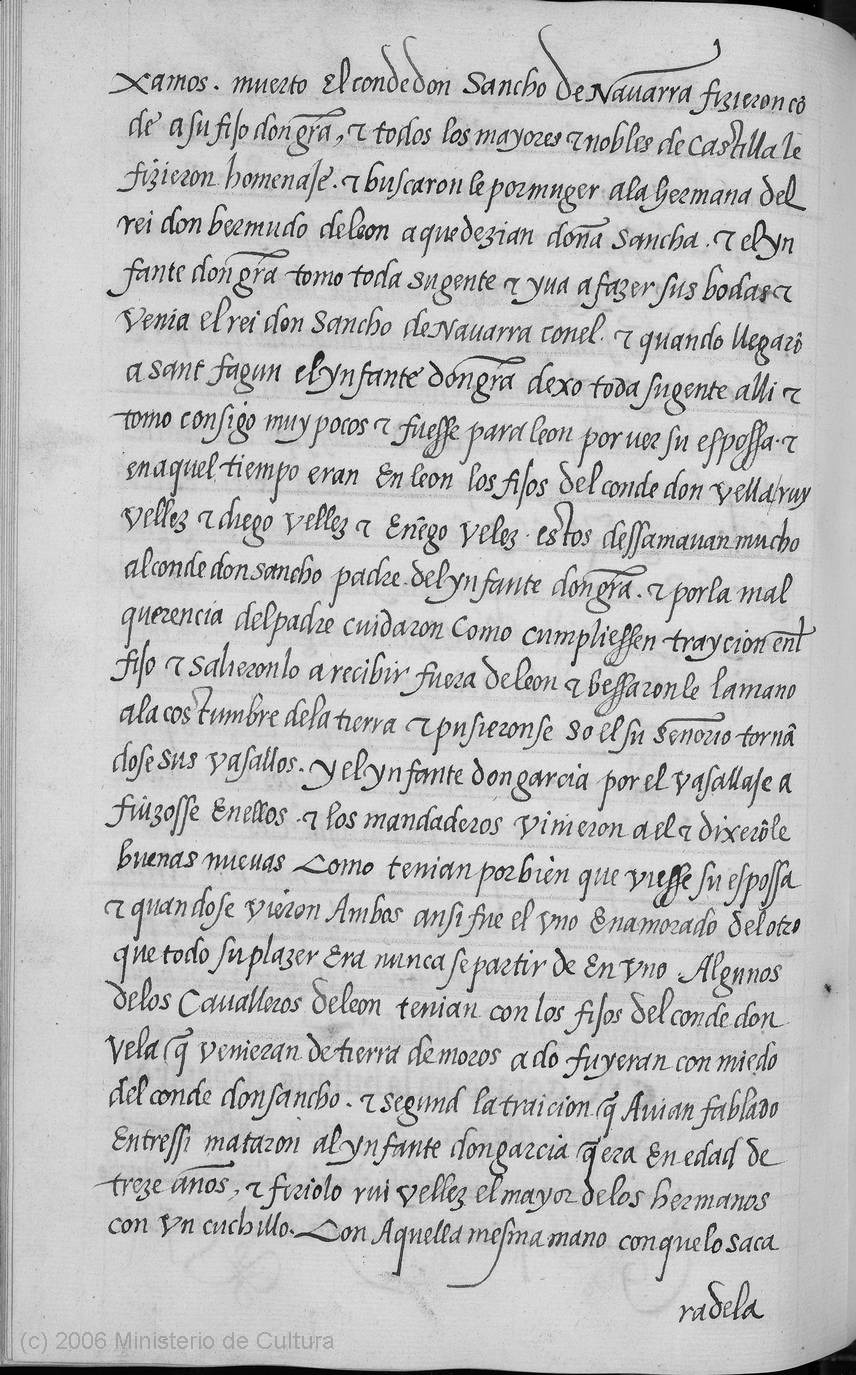 xamos. muerto El conde don Sancho de Navarra fizieron cõ
de a su fijo don gr̃a, τ todos los mayores τ nobles de Castilla le
fizieron homenaje. τ buscaron le por muger ala hermana del
rei don bermudo de leon a que dezian doña Sancha. τ el yn
fante don gr̃a tomo toda su gente τ yva a fazer sus bodas τ
venia el rei don Sancho de Navarra con el. τ quando llegarõ
a sant fagun el ynfante don gr̃a dexo toda su gente alli τ
tomo consigo muy pocos τ fuesse para leon por ver su espossa. τ
en aquel tiempo eran En leon los fijos del conde don vella / ruy
vellez τ diego vellez τ Eñego velez. estos dessamavan mucho
al conde don sancho padre del ynfante don gr̃a. τ por la mal
querencia del padre cuidaron Como cumpliessen traycion enl
fijo τ salieronlo a recibir fuera de leon τ bessaronle la mano
a la costumbre de la tierra τ pusieronse so el su señorio tornã
dose sus vasallos. y el ynfante don garcia por el vasallaje a
fiuzosse En ellos. τ los mandaderos vinieron a el τ dixerõle
buenas nuevas Como tenian por bien que viesse su espossa
τ quando se vieron Ambos ansi fue el vno Enamorado del otro
que todo su plazer Era nunca se partir de En vno. Algunos
de los Cavalleros de leon tenian con los fijos del conde don
Vela q̃ venieran de tierra de moros a do fuyeran con miedo
del conde don sancho. τ segund la traicion q̃ Avian fablado
Entressi mataron al ynfante don garcia q̃ era En edad de
treze años, τ firiolo rui vellez el mayor de los hermanos
con vn cuchillo. Con Aquella mesma mano con que lo saca
ra de la
(c) 2006 Ministerio de Cultura